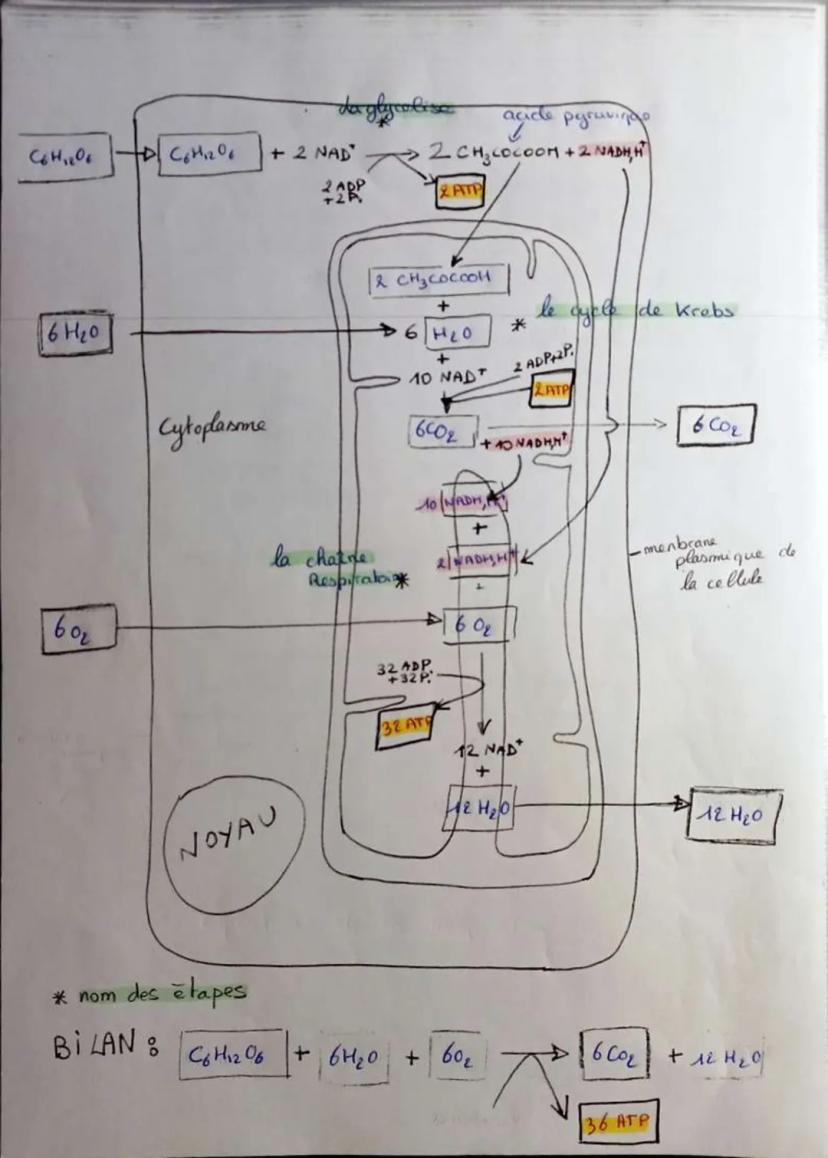 La glycolise
*
acide pyruvique
C6H12O6
C6H12O6 + 2 NAD+ → 2 CH3COCOOH + 2 NADH,H+
2 ADP
+2Pi
2 ATP
2 CH3COCOOH
+
le cycle de Krebs
6H2O
6 H2O *
+
2 ADP+2Pi
10 NAD+
2ATP
Cytoplasme
6CO2
+ 10 NADH,H+
6 CO2
10 NADH,H+
+
la chaîne
Respiratoire*
2 NADH,H+
menbrane
plasmique de
la cellule
+
6O2
6 O2
32 ADP
+32Pi
32 ATP
12 NAD+
+
12 H2O
12 H2O
NOYAU
* nom des étapes
BiLAN : C6H12O6 + 6H2O + 6O2 → 6CO2 + 12 H2O
36 ATP